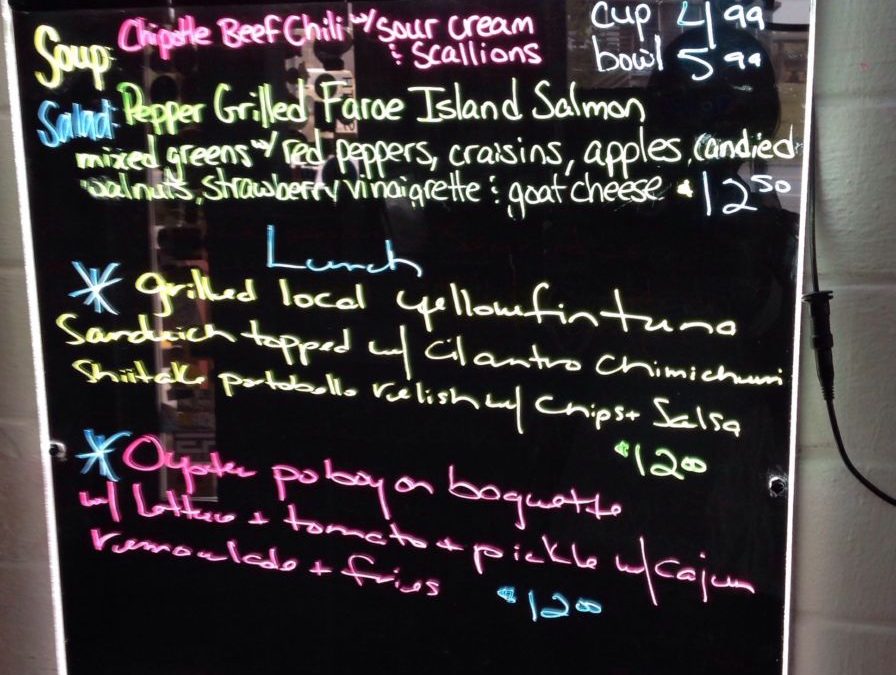 Soup Chipotle Beef Chili w/ Sour Cream cup 4 99
& Scallions bowl 5 99
Salad Pepper Grilled Faroe Island Salmon
mixed greens w/ red peppers, craisins, apples, candied
walnuts, strawberry vinaigrette & goat cheese 12 50
Lunch
* grilled local yellowfin tuna
Sandwich topped w/ Cilantro Chimichurri
Shiitake portobello relish w/ Chips + Salsa
12 00
* Oyster poboy on baguette
w/ lettuce + tomato + pickle w/ Cajun
remoulade + fries
12 00